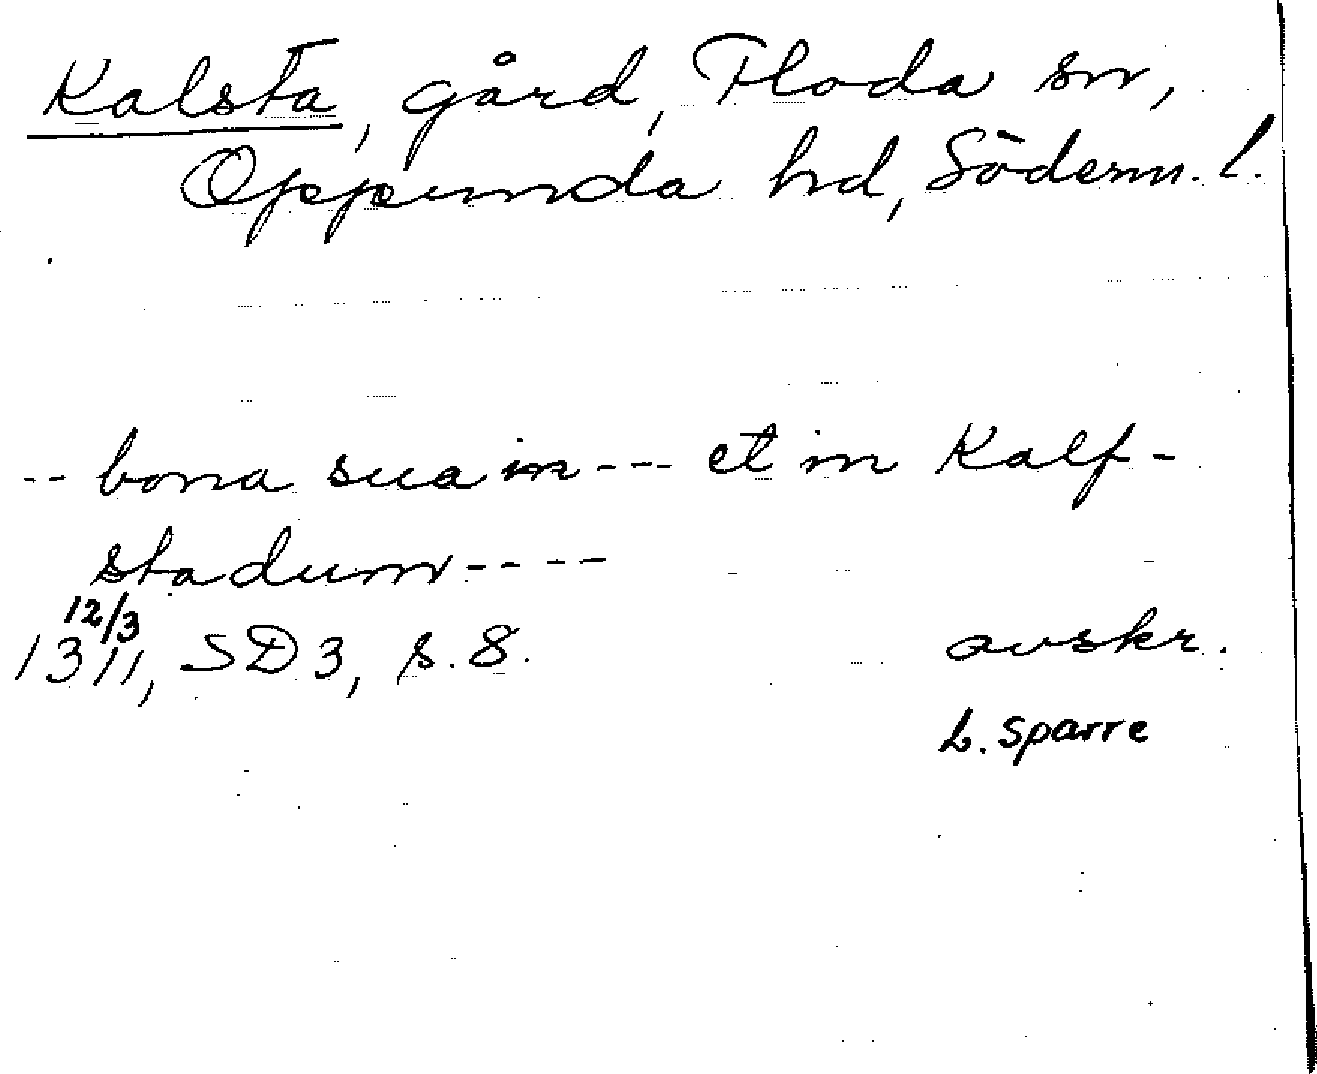 Kalsta, gård, Floda sn,
Oppunda hd, Söderm. l.
-- bona sua in --- et in Kalf-
stadum ----
12/3
1311, SD 3, s. 8. avskr.
L. Sparre